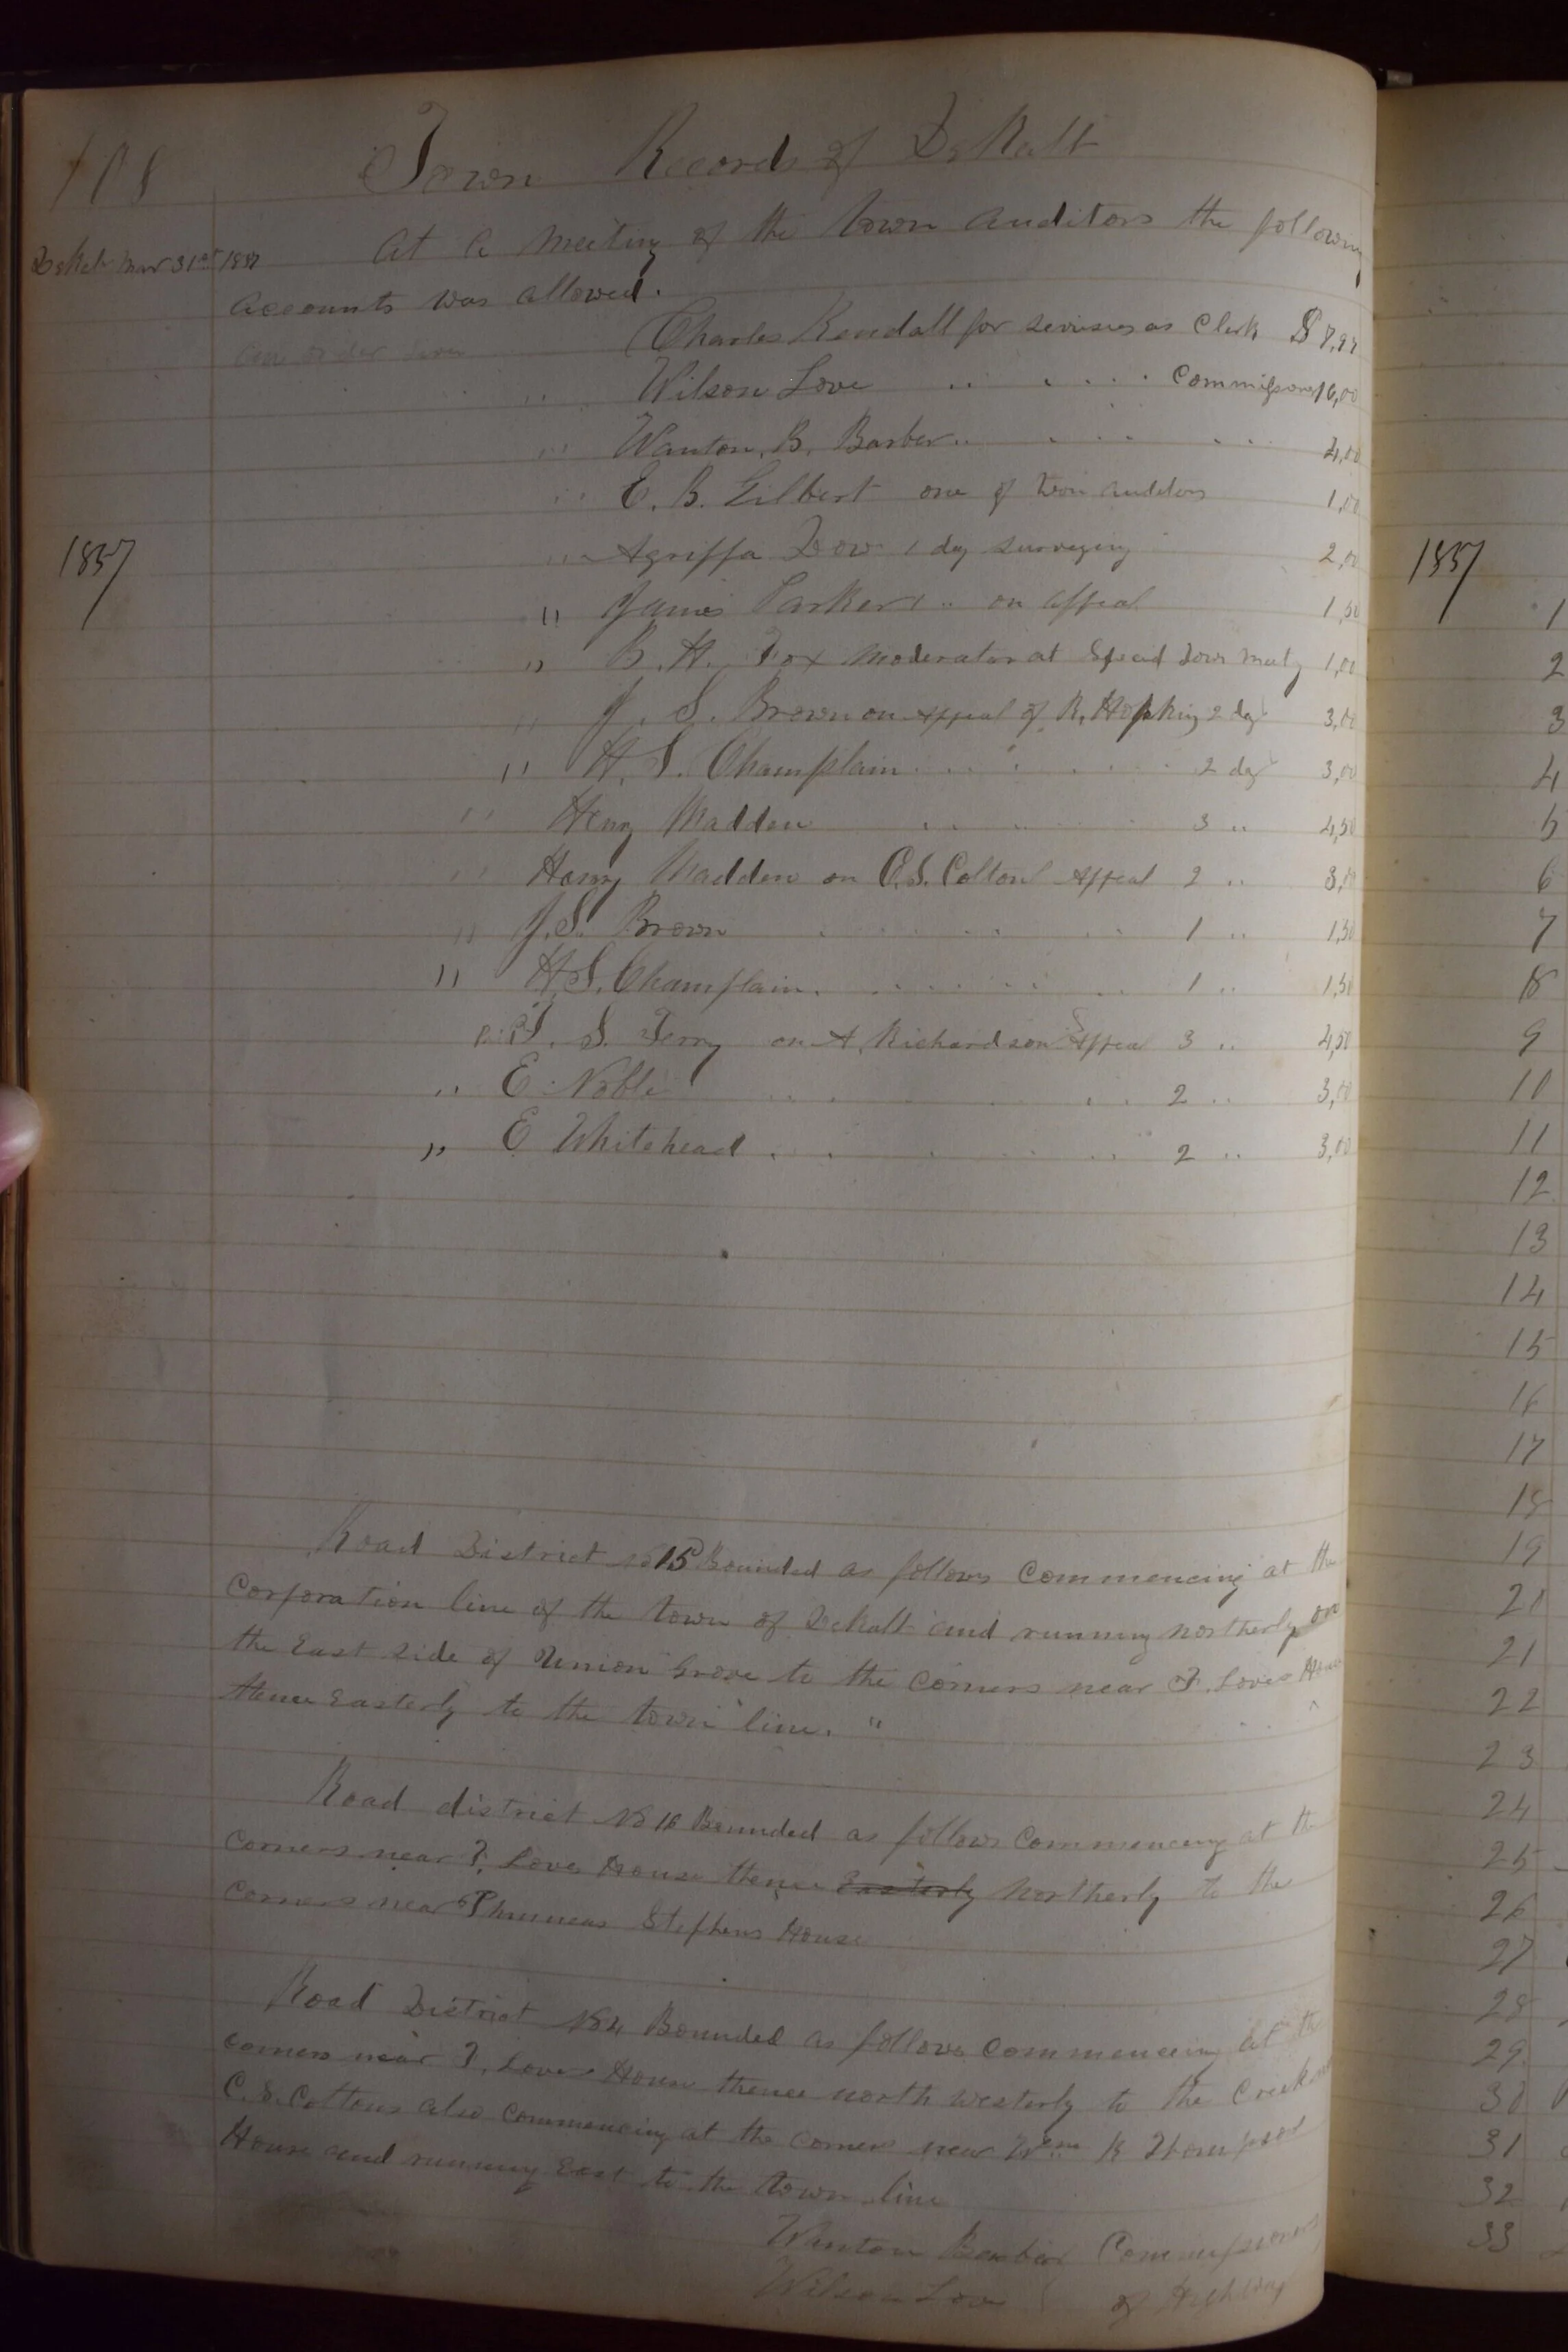 108 Town Records of DeKalb
DeKalb Mar 31st 1857 At a meeting of the town auditors the following
accounts was allowed.
Charles Kendall for services as Clerk $
" Wilson Love " " Commissioner 16,00
" Wanton. B. Barber " " 4,00
" E. B. Gilbert one of town auditors 1,00
1857
" Agriffa Dow 1 day surveying 2,00
" James Parker 1 " on appeal 1,50
" B. H. Fox moderator at Special Town meetg 1,00
" J. S. Brown on Appeal of R. Hopkins 2 days 3,00
" H. S. Champlain " " 2 days 3,00
" Henry Madden " " 3 " 4,50
" Harry Madden on C.S. Coltons Appeal 2 " 3,00
" J. S. Brown " " 1 " 1,50
" H. S. Champlain " " 1 " 1,50
S. Terry on A. Richardsons Appeal 3 " 4,50
" E. Noble " " 2 " 3,00
" E Whitehead " " 2 " 3,00
Road District No 15 Bounded as follows Commencing at the
Corporation line of the town of Dekalb and running northerly on
the East side of Union Grove to the Corners near T. Loves House
thence Easterly to the town line. "
Road district No 16 Bounded as follows Commencing at the
Corners near T. Loves House thence Easterly Northerly to the
Corners near Phinneas Stephens House
Road District No 4 Bounded as follows Commencing at the
corners near T. Loves House thence north westerly to the Creek
C. S. Coltons also Commencing at the corners near Wm K Thompson
House and running East to the town line
Wanton Barber Commissioners
Wilson Love of Highway
1857
1
2
3
4
5
6
7
8
9
10
11
12
13
14
15
16
17
18
19
20
21
22
23
24
25
26
27
28
29
30
31
32
33